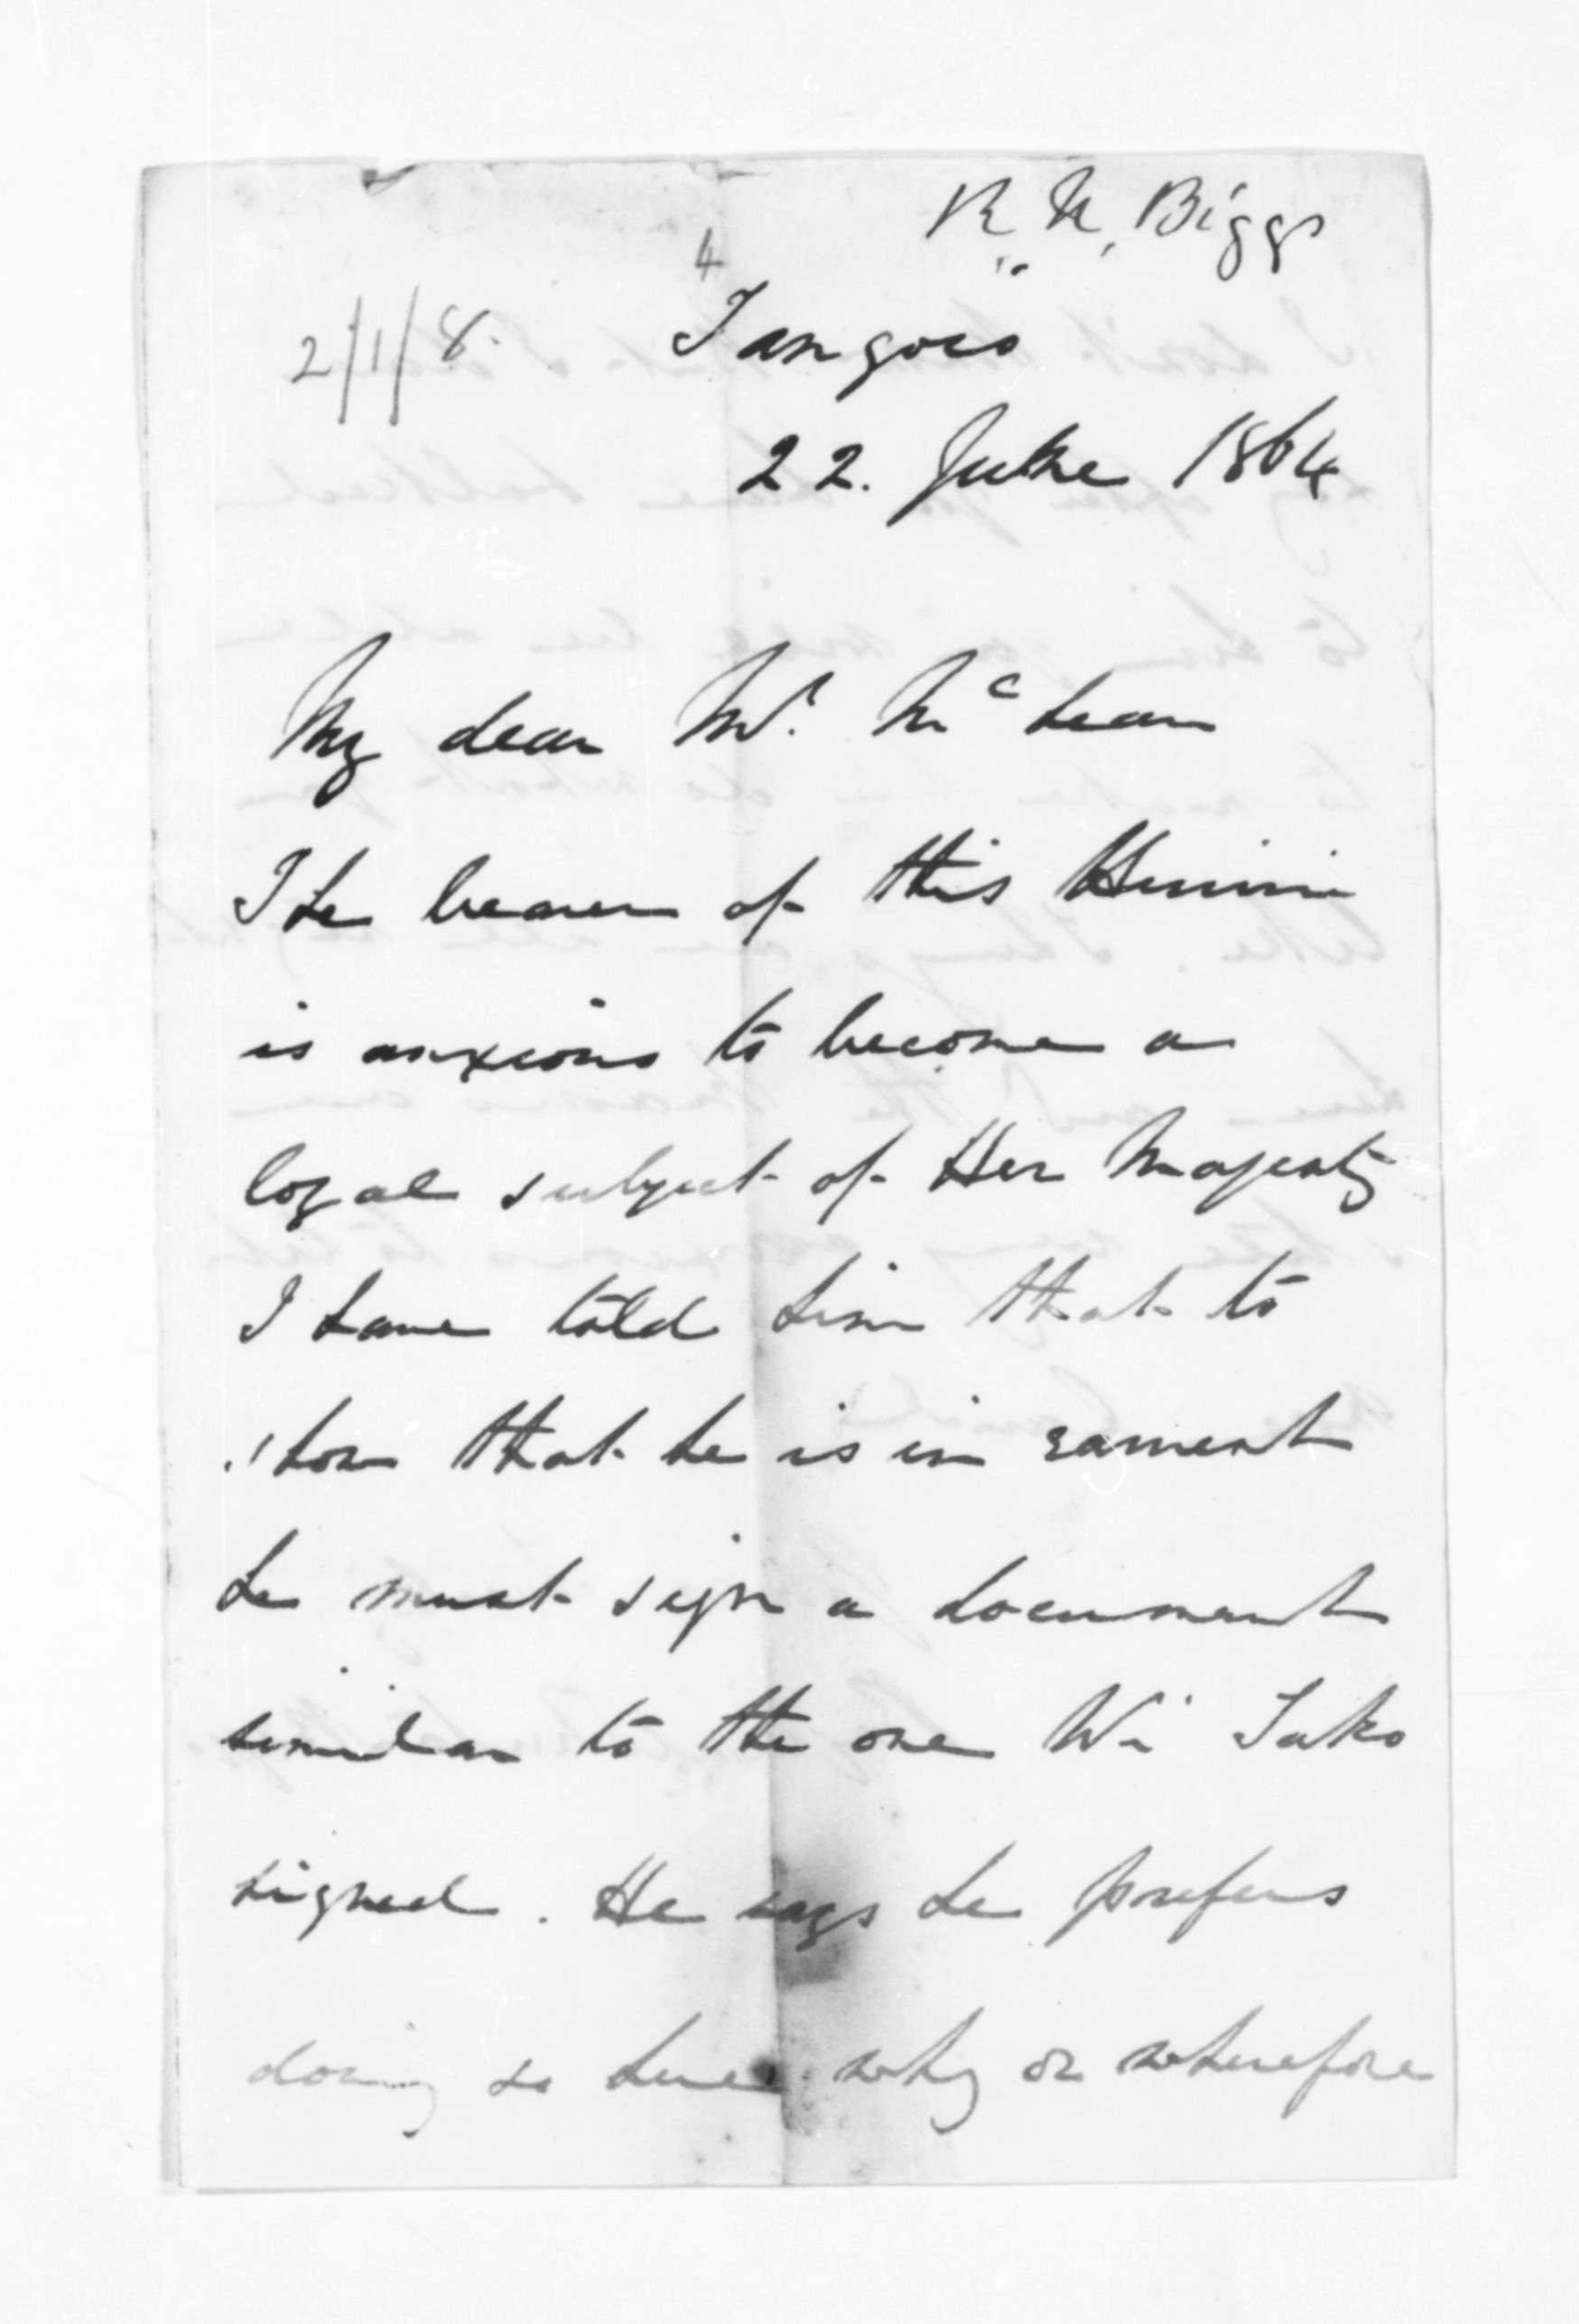 R. N. Biggs
4
2/1/8.
Tangoio
22. June 1864
My dear Mr. McLean
The bearer of this
is anxious to become a
loyal subject of Her Majesty
I have told him that to
show that he is in earnest
he must sign a document
similar to the one Wi Tako
signed. He says he prefers
doing so here why or wherefore